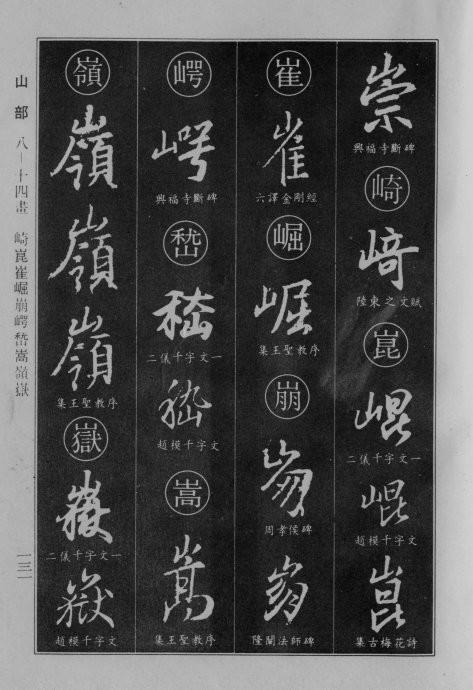 崇
興福寺斷碑
崎
崎
陸柬之文賦
崑
崐
二儀千字文一
崐
趙模千字文
崑
集古梅花詩
崔
崔
六譯金剛經
崛
崛
集王聖教序
崩
崩
周孝侯碑
崩
隆闡法師碑
崿
崿
興福寺斷碑
嵇
嵇
二儀千字文一
嵇
趙模千字文
嵩
嵩
集王聖教序
嶺
嶺
嶺
嶺
集王聖教序
嶽
嶽
二儀千字文一
嶽
趙模千字文
山部 八—十四畫 崎崑崔崛崩崿嵇嵩嶺嶽
一三一